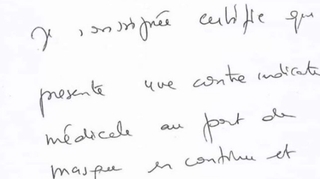 Je soussignée certifie que
presente une contre indicat
médicale au port de
masque en continu et